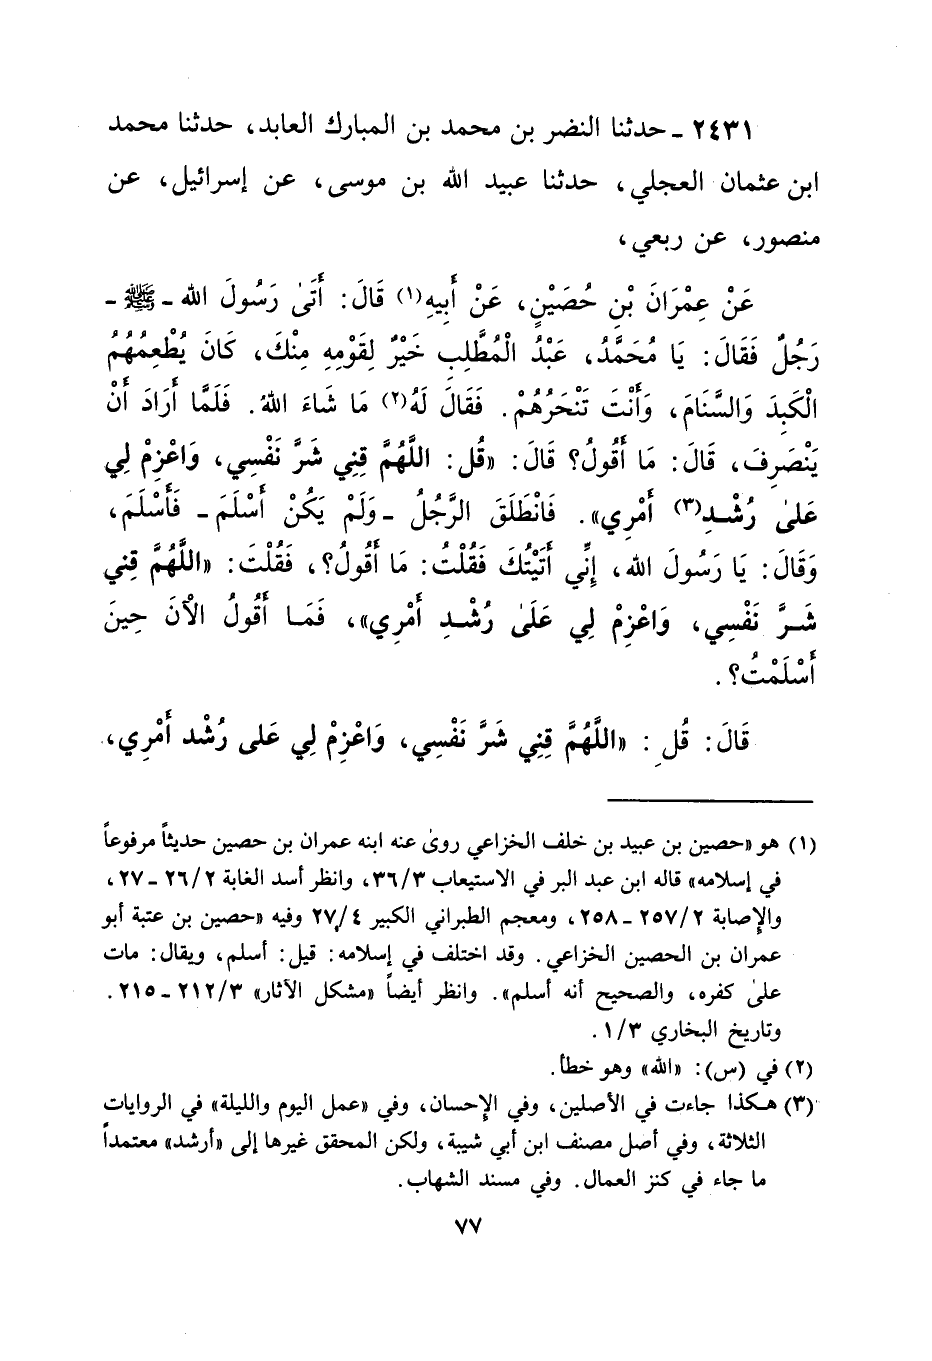 ٢٤٣١ - حدثنا النضر بن محمد بن المبارك العابد، حدثنا محمد
ابن عثمان العجلي، حدثنا عبيد الله بن موسى، عن إسرائيل، عن
منصور، عن ربعي،
عَنْ عِمْرَانَ بْنِ حُصَيْنٍ، عَنْ أَبِيهِ(١) قَالَ: أَتَىٰ رَسُولَ الله - ﷺ -
رَجُلٌ فَقَالَ: يَا مُحَمَّدُ، عَبْدُ الْمُطَّلِبِ خَيْرٌ لِقَوْمِهِ مِنْكَ، كَانَ يُطْعِمُهُمُ
الْكَبِدَ وَالسَّنَامَ، وَأَنْتَ تَنْحَرُهُمْ. فَقَالَ لَهُ(٢) مَا شَاءَ اللهُ. فَلَمَّا أَرَادَ أَنْ
يَنْصَرِفَ، قَالَ: مَا أَقُولُ؟ قَالَ: «قُلِ: اللَّهُمَّ قِنِي شَرَّ نَفْسِي، وَاعْزِمْ لِي
عَلىٰ رُشْدِ(٣) أَمْرِي». فَانْطَلَقَ الرَّجُلُ -وَلَمْ يَكُنْ أَسْلَمَ- فَأَسْلَمَ،
وَقَالَ: يَا رَسُولَ الله، إِنِّي أَتَيْتُكَ فَقُلْتُ: مَا أَقُولُ؟، فَقُلْتَ: «اللَّهُمَّ قِنِي
شَرَّ نَفْسِي، وَاعْزِمْ لِي عَلَىٰ رُشْدِ أَمْرِي»، فَمَا أَقُولُ الْآنَ حِينَ
أَسْلَمْتُ؟.
قَالَ: قُلِ: «اللَّهُمَّ قِنِي شَرَّ نَفْسِي، وَاعْزِمْ لِي عَلى رُشْد أَمْرِي،
(١) هو «حصين بن عبيد بن خلف الخزاعي روىٰ عنه ابنه عمران بن حصين حديثاً مرفوعاً
في إسلامه» قاله ابن عبد البر في الاستيعاب ٣٦/٣، وانظر أسد الغابة ٢٦/٢ -٢٧،
والإصابة ٢٥٧/٢ -٢٥٨، ومعجم الطبراني الكبير ٢٧/٤ وفيه «حصين بن عتبة أبو
عمران بن الحصين الخزاعي. وقد اختلف في إسلامه: قيل: أسلم، ويقال: مات
علىٰ كفره، والصحيح أنه أسلم». وانظر أيضاً «مشكل الآثار» ٢١٢/٣ -٢١٥.
وتاريخ البخاري ١/٣.
(٢) في (س): «الله» وهو خطأ.
(٣) هكذا جاءت في الأصلين، وفي الإحسان، وفي «عمل اليوم والليلة» في الروايات
الثلاثة، وفي أصل مصنف ابن أبي شيبة، ولكن المحقق غيرها إلى «أرشد» معتمداً
ما جاء في كنز العمال. وفي مسند الشهاب.
٧٧